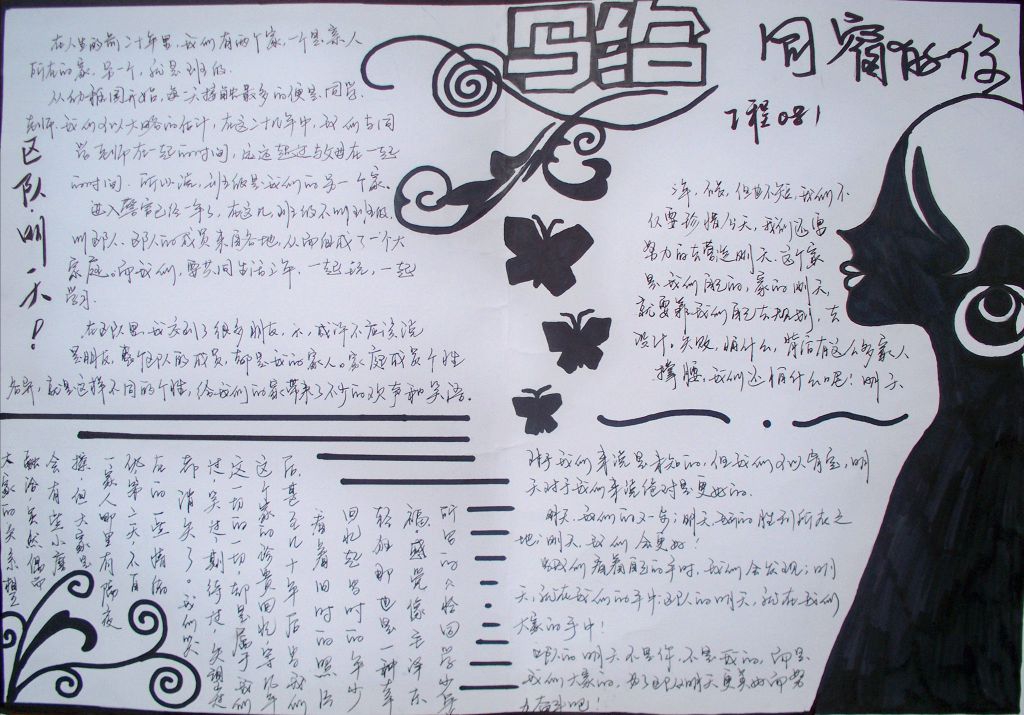 写给
同窗的你
工程081
区队·明天！
在人生的前二十年里，我们有两个家，一个是亲人
所在的家，另一个，就是班级。
从幼稚园开始，每一天接触最多的便是同学、
老师。我们可以大略的估计，在这二十几年中，我们与同
学老师在一起的时间，远远超过与父母在一起
的时间。所以说，班级是我们的另一个家。
进入警官已经一年了，在这儿班级不叫班级，
叫区队。区队的成员来自各地，从而组成了一个大
家庭。而我们，要共同生活三年，一起玩，一起
学习。
在区队里，我交到了很多朋友，不，或许不应该说
是朋友，整个区队的成员，都是我的家人。家庭成员个性
名异，就是这样不同的个性，给我们的家带来了不少的欢声和笑语。
大家的关系挺
融洽，虽然偶尔
会有些小摩
擦，但大家是
一家人哪里有隔夜
仇第二天不自
在的一些情绪
都消失了。我们笑
过，哭过，期待过，失望过
这一切的一切，却是属于我们
这个家的珍贵回忆，等几年
后，甚至几十年后，当我们
看着旧时的照片
回忆起当时的年少
轻狂，那也是一种幸
福，感觉像
所写的《恰同学少年
三年，不长，但也不短，我们不
仅要珍惜今天，我们还需
努力的去营造明天。这个家
是我们自己的，家的明天，
就要靠我们自己去规划，去
设计，失败，怕什么，背后有这么多家人
撑腰，我们还怕什么呢！明天
对于我们来说是未知的，但我们可以肯定，明
天对于我们来说绝对是更好的。
明天，我们的又一步；明天，我们的胜利所在之
地；明天，我们会更好！
当我们看着自己的手时，我们会发现：明
天，就在我们的手中；区队的明天，就在我们
大家的手中！
区队的明天不是你，不是我的，而是
我们大家的，为了区队明天更美好而努
力奋斗吧！